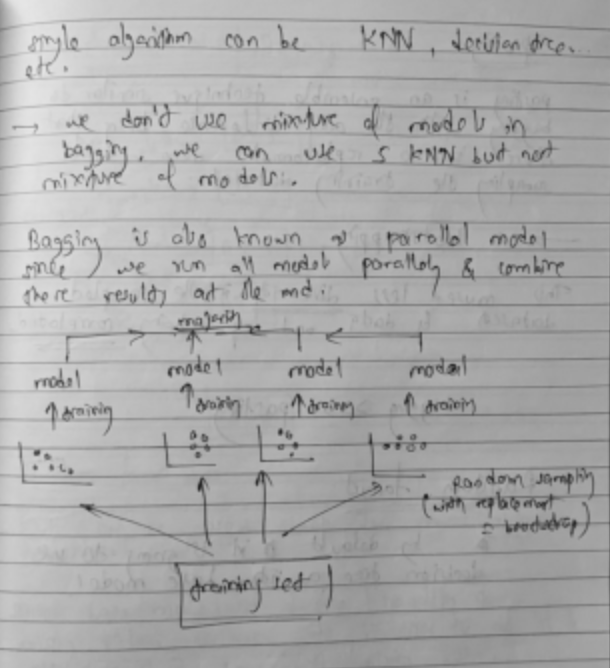 single algorithm can be KNN, decision tree...
etc.
→ we don't use mixture of models in
bagging. we can use 5 KNN but not
mixture of models.
Bagging is also known as parallel model
since we run all model parallely & combine
there results at the end.
majority
model model model model
↑ training ↑ training ↑ training ↑ training
random sampling
(with replacement
= bootstrap)
training set